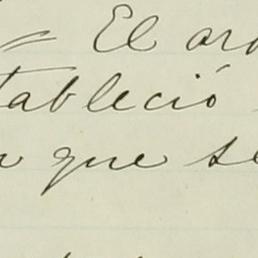 = El ar
tableció
que se